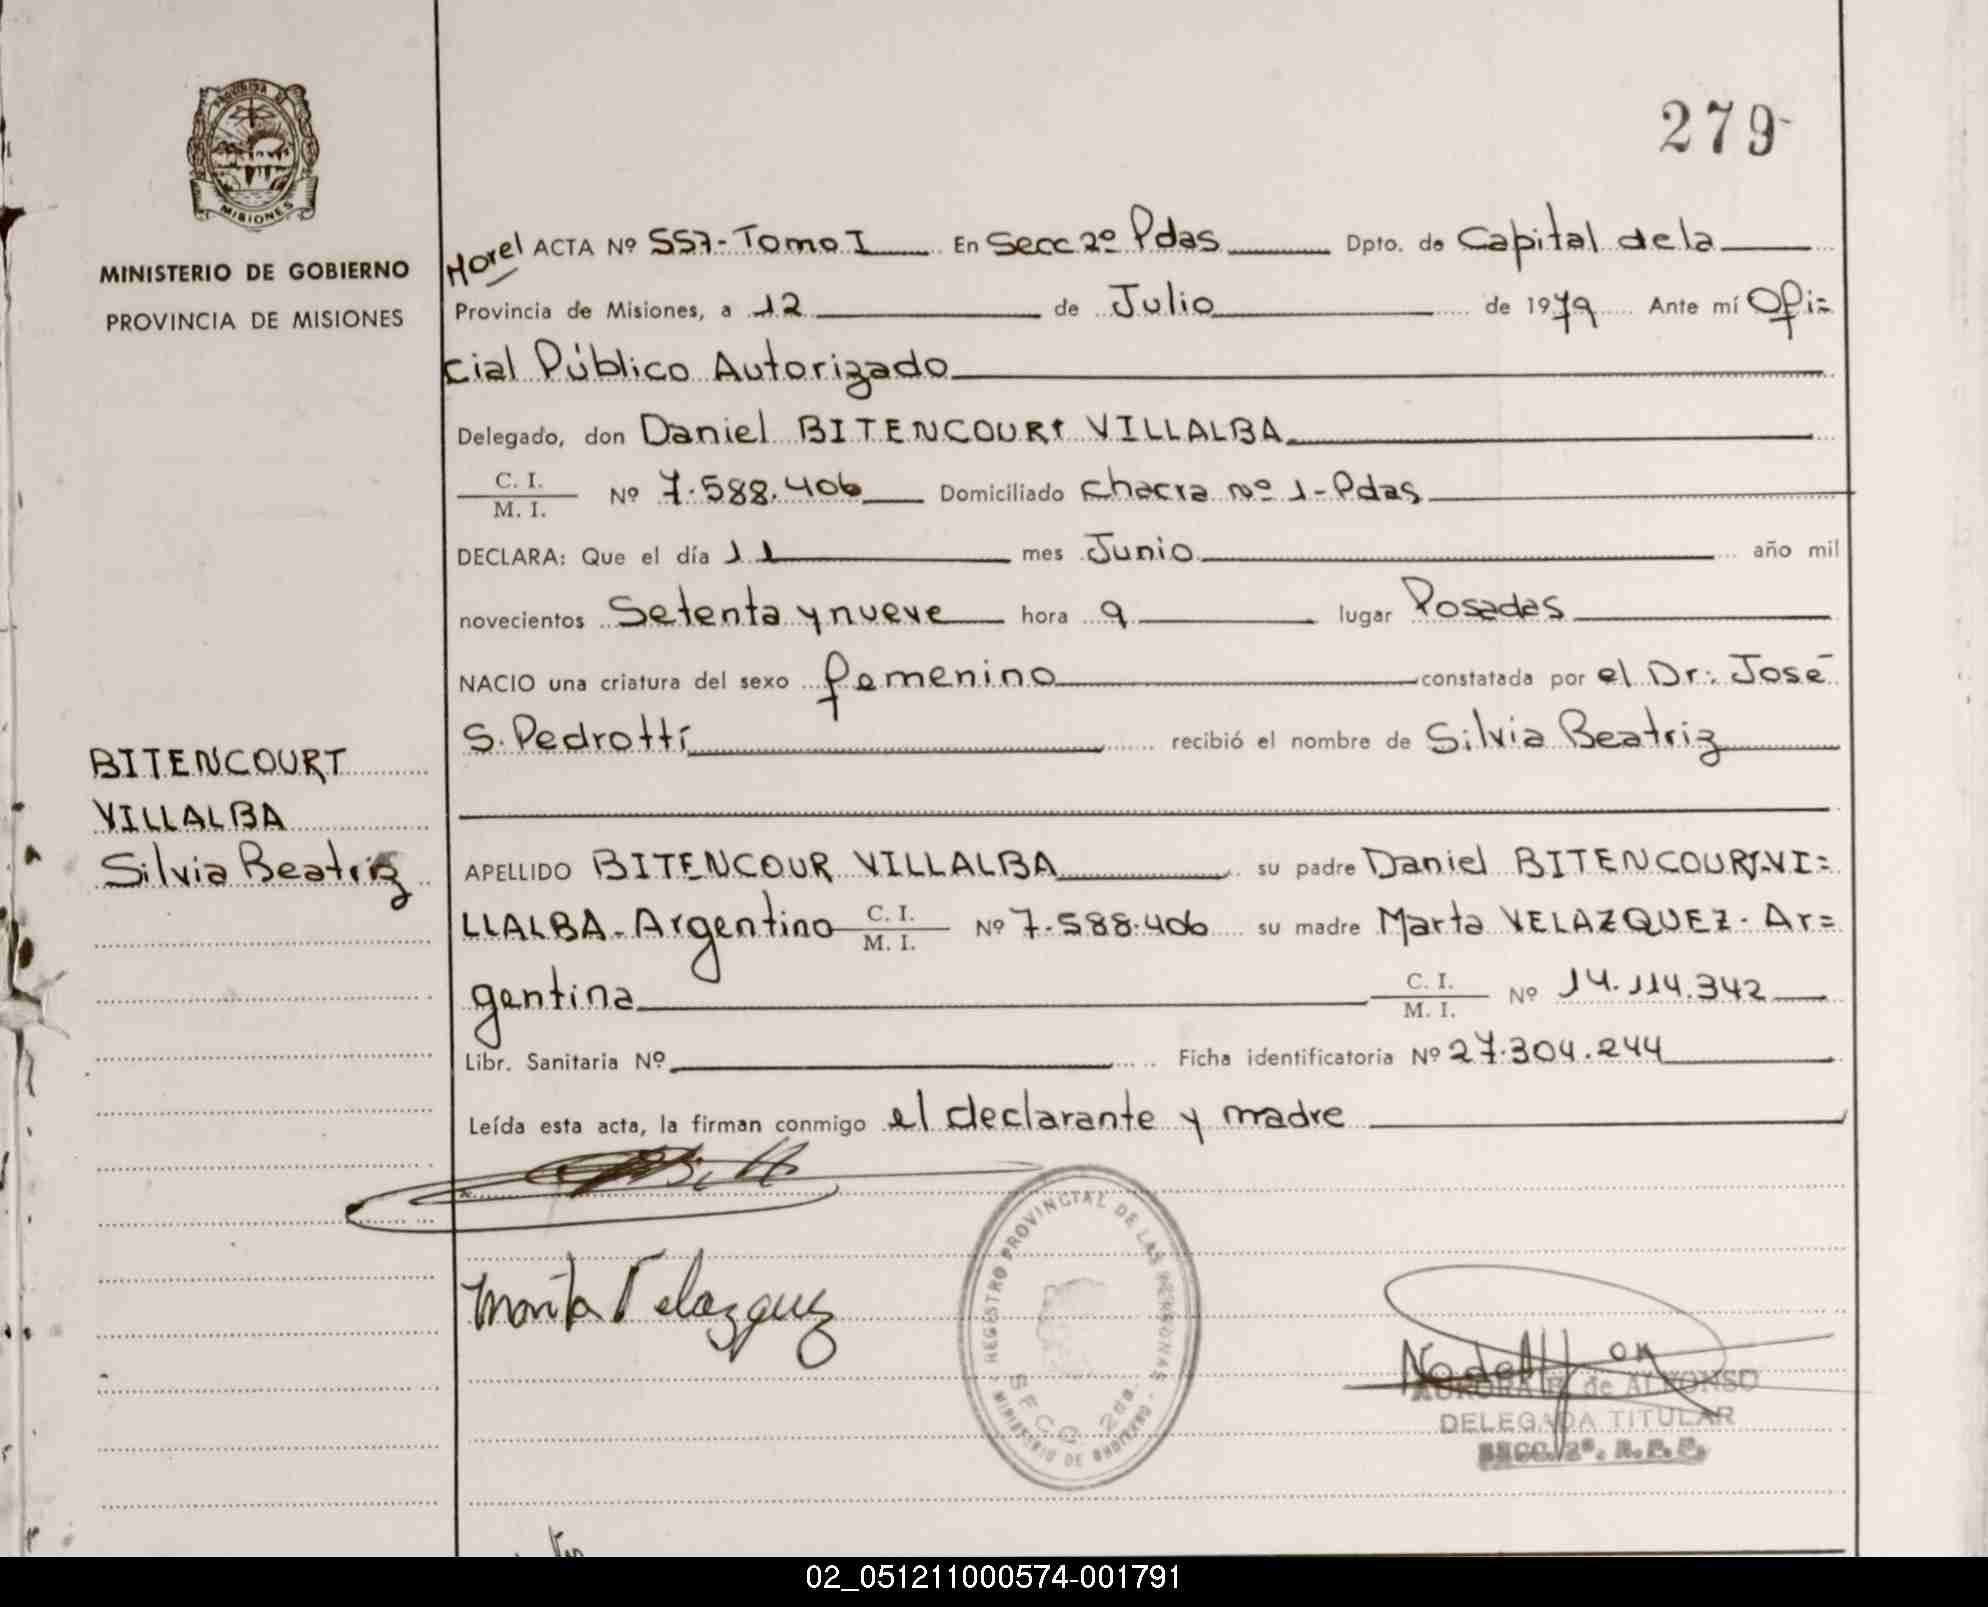 PROVINCIA DE
MISIONES
MINISTERIO DE GOBIERNO
PROVINCIA DE MISIONES
BITENCOURT
VILLALBA
Silvia Beatriz
279
ACTA Nº 557-Tomo I En Secc 2º Pdas Dpto. de Capital de la
Provincia de Misiones, a 12 de Julio de 1979 Ante mí Ofi=
cial Público Autorizado
Delegado, don Daniel BITENCOURT VILLALBA
C. I.
M. I. Nº 7.588.406 Domiciliado chacra nº 1-Pdas
DECLARA: Que el día 11 mes Junio año mil
novecientos Setenta y nueve hora 9 lugar Posadas
NACIO una criatura del sexo femenino constatada por el Dr: José
S. Pedrotti recibió el nombre de Silvia Beatriz
APELLIDO BITENCOUR VILLALBA su padre Daniel BITENCOURT-VI=
LLALBA-Argentino C. I. M. I. Nº 7.588.406 su madre Marta VELAZQUEZ-Ar=
gentina C. I. M. I. Nº 14.114.342
Libr. Sanitaria Nº Ficha identificatoria Nº 27.304.244
Leída esta acta, la firman conmigo el declarante y madre
Marta Velazquez
REGISTRO PROVINCIAL DE LAS PERSONAS
SECC. 2da.
MINISTERIO DE GOBIERNO
AURORA de ALFONSO
DELEGADA TITULAR
SECC. 2ª. R.P.P.
02_051211000574-001791